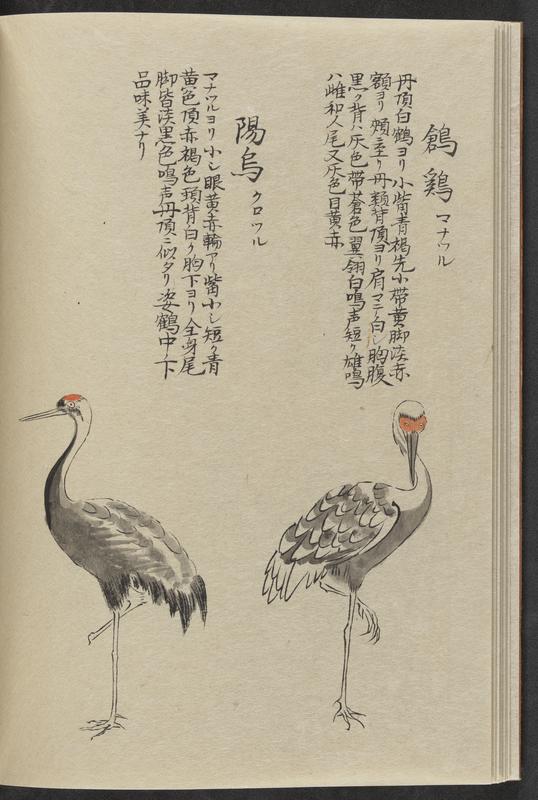 鶬鷄 マナヅル
丹頂白鶴ヨリ小觜青褐先小帶黄脚淡赤
額ヨリ頰ニ至リ丹頰背頂ヨリ肩マテ白シ胸腹
黒ク背ハ灰色帶蒼色翼翎白鳴声短ク雄鳴
ハ雌和人尾又灰色目黄赤
陽烏 クロツル
マナツルヨリ小シ眼黄赤輪アリ觜小シ短ク青
黄色頂赤褐色頚背白ク胸下ヨリ全身尾
脚皆淡黒色鳴声丹頂ニ似タリ姿鶴中ノ下
品味美ナリ